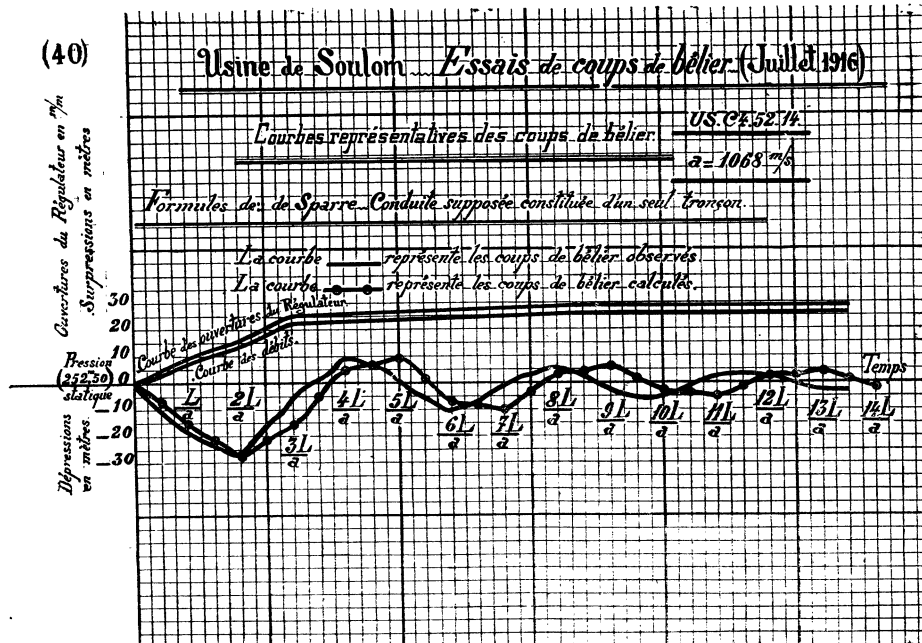 (40)
Usine de Soulom _ Essais de coups de bélier _ (Juillet 1916)
Courbes représentatives des coups de bélier.
US.C4.52.14.
a = 1068 m/s
Formules de: de Sparre _ Conduite supposée constituée d'un seul tronçon.
La courbe ——— représente les coups de bélier observés.
La courbe —●—●— représente les coups de bélier calculés.
Ouvertures du Régulateur en m/m
Surpressions en mètres
30
20
10
0
_10
_20
_30
Pression
(252,50)
statique
Dépressions
en mètres
Courbe des ouvertures du Régulateur.
Courbe des débits.
Temps
L/a
2L/a
3L/a
4L/a
5L/a
6L/a
7L/a
8L/a
9L/a
10L/a
11L/a
12L/a
13L/a
14L/a